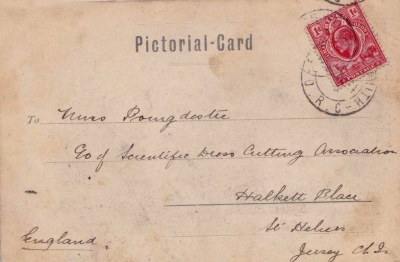 Pictorial-Card
1d 1d
To Miss Poingdestre
C/o of Scientific Dress Cutting Association
Halkett Place
St Heliers
England. Jersey C. Is.
O.R.C-